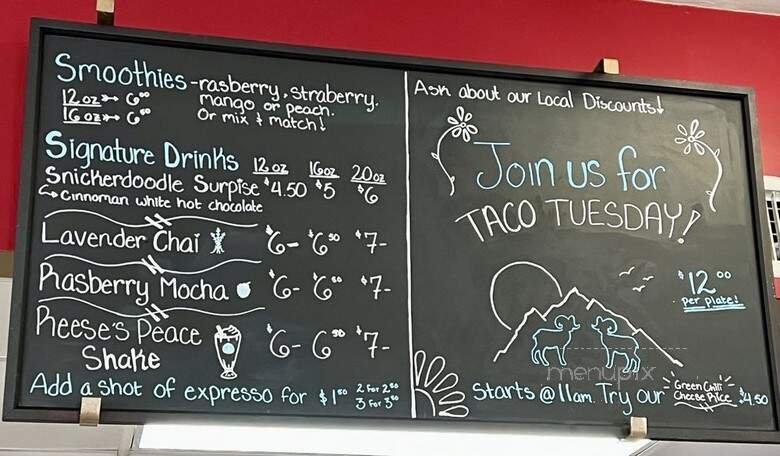 Smoothies - rasberry, straberry.
mango or peach.
Or mix & match!
12 oz → 6⁰⁰
16 oz → 6⁵⁰
Signature Drinks 12 oz 16oz 20 oz
Snickerdoodle Surpise $4.50 $5 $6
cinnoman white hot chocolate
Lavender Chai $6- $6⁵⁰ $7-
Rasberry Mocha $6- $6⁵⁰ $7-
Reese's Peace Shake $6- 6⁵⁰ $7-
Add a shot of expresso for $1⁵⁰ 2 For 2⁵⁰
3 For 3⁵⁰
Ask about our Local Discounts!
Join us for
TACO TUESDAY!
$12⁰⁰
per plate!
menupix
Starts @ 11am. Try our Green Chili Cheese Rice $4.50